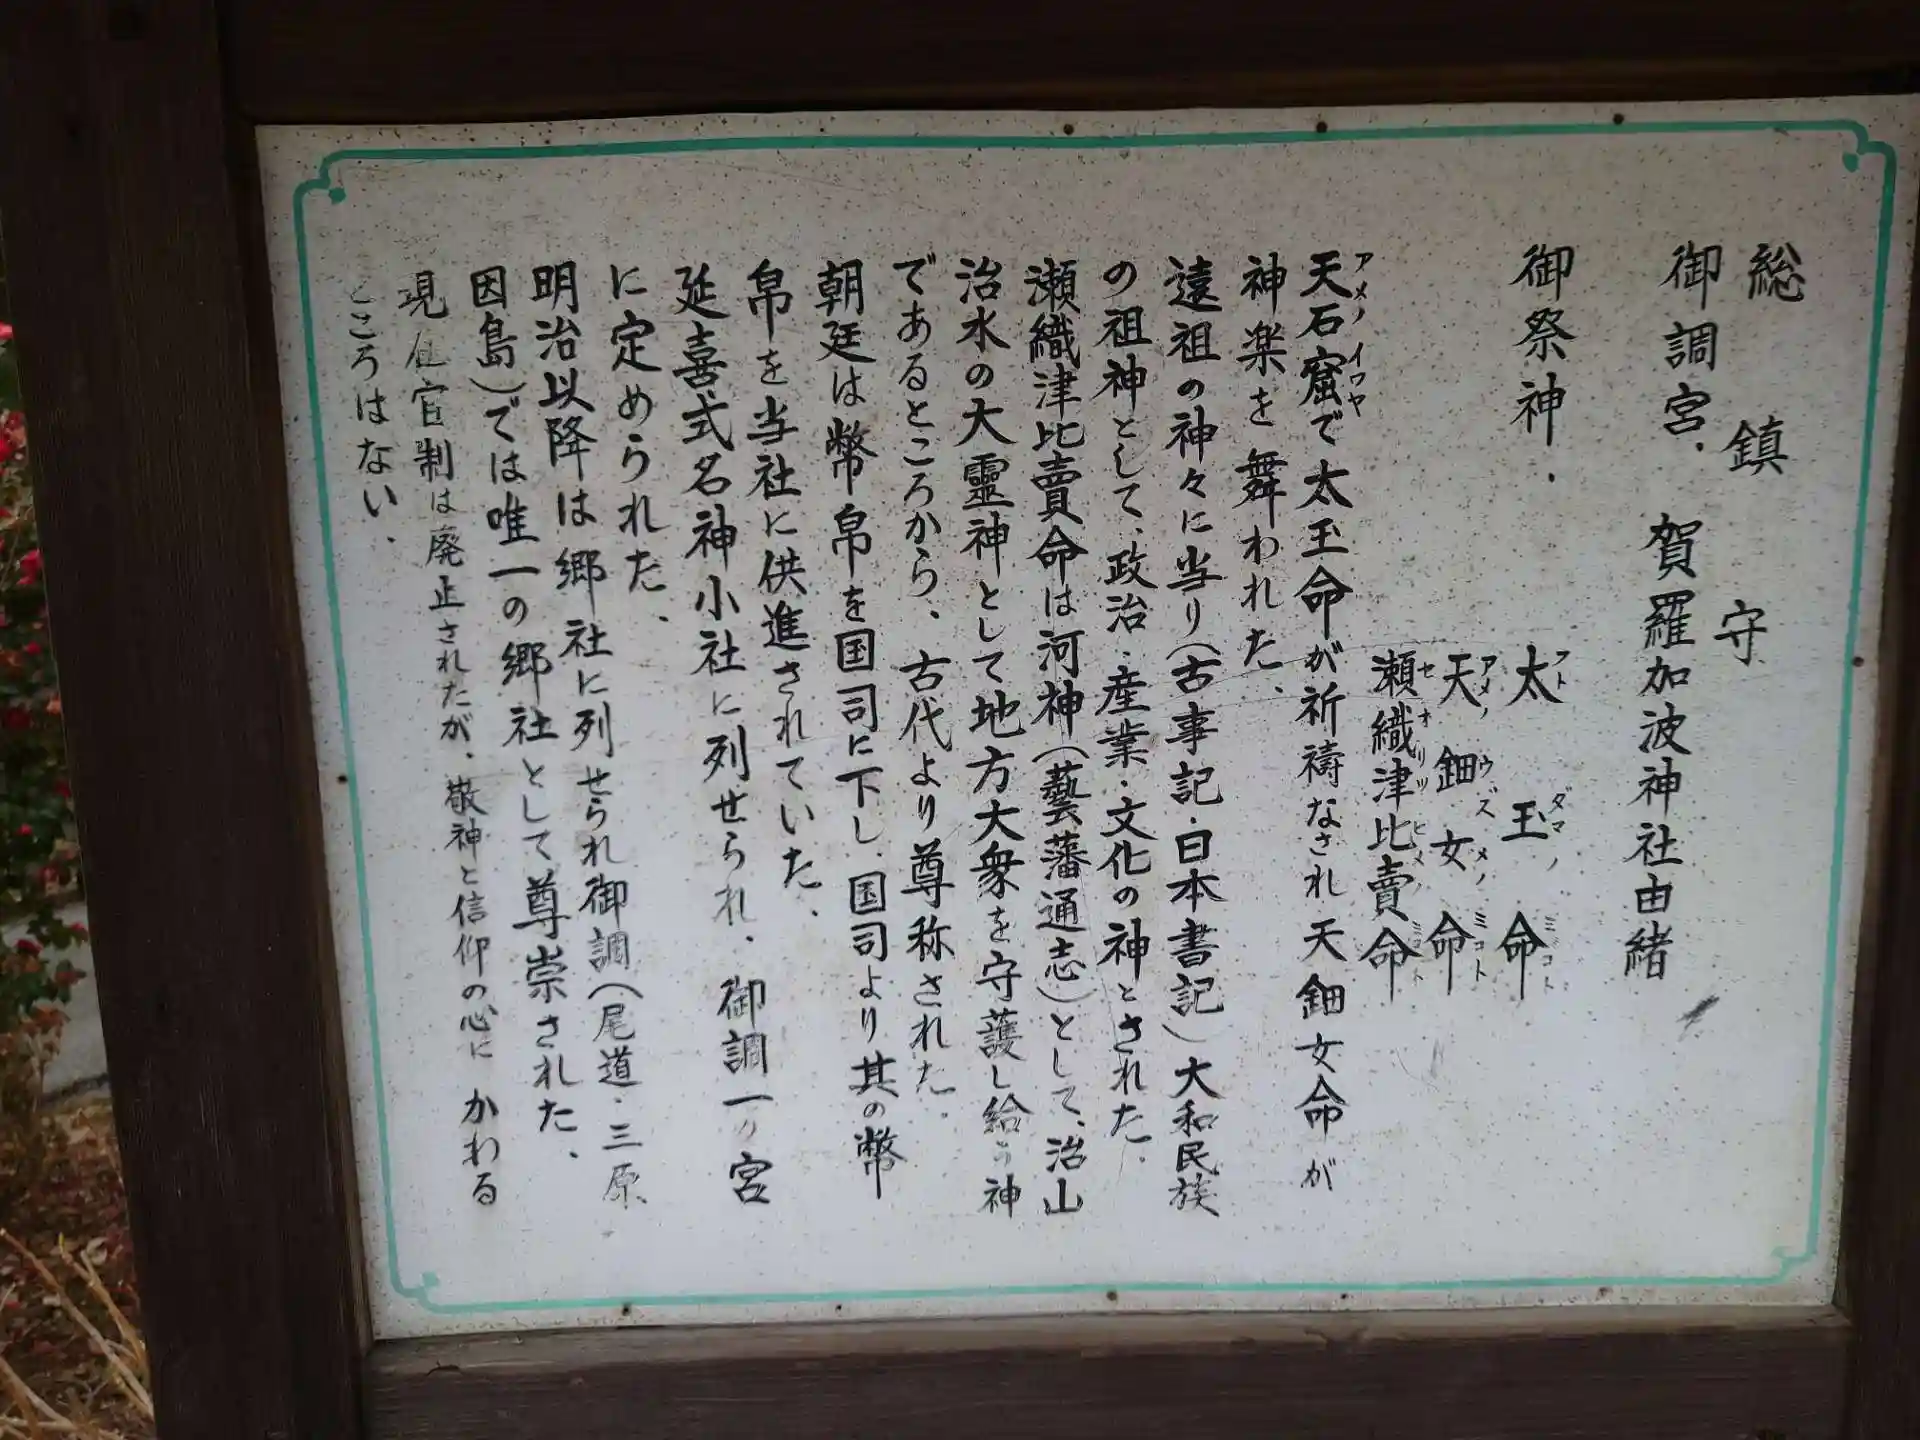 総鎮守
御調宮・賀羅加波神社由緒
御祭神・太玉命
アトダマノミコト
天鈿女命
アメノウズメノミコト
瀬織津比賣命
セオリツヒメノミコト
アメノイワヤ
天石窟で太玉命が祈禱なされ天鈿女命が
神楽を舞われた、
遠祖の神々に当り(古事記・日本書記)大和民族
の祖神として、政治・産業・文化の神とされた、
瀬織津比賣命は河神(藝藩通志)として、治山
治水の大靈神として地方大衆を守護し給う神
であるところから、古代より尊称された、
朝廷は幣帛を国司に下し、国司より其の幣
帛を当社に供進されていた、
延喜式名神小社に列せられ、御調一の宮
に定められた、
明治以降は郷社に列せられ御調(尾道・三原
因島)では唯一の郷社として尊崇された、
現在官制は廃止されたが、敬神と信仰の心にかわる
ところはない、